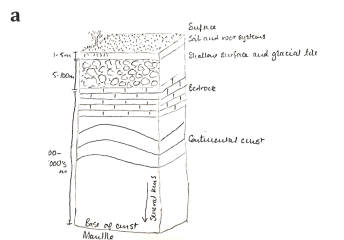 a
Surface
Soil and root systems
1-5m
Shallow surface and glacial tile
5-100m
Bedrock
Continental crust
00-
000's
m
General kms
Base of crust
Mantle